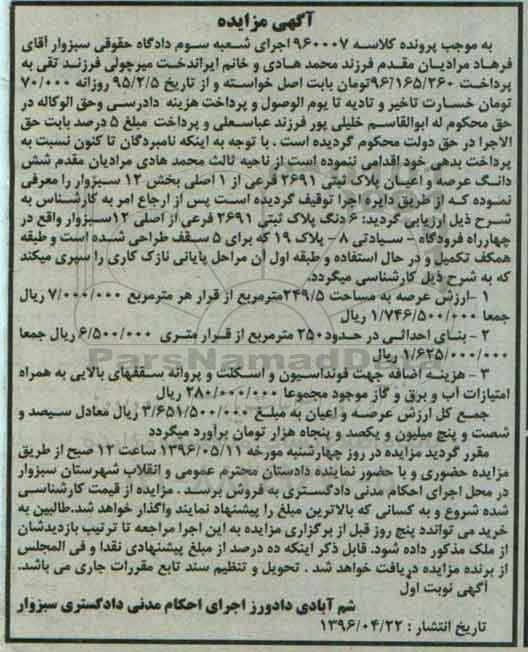 آگهی مزایده
به موجب پرونده کلاسه ۹۶۰۰۰۷ اجرای شعبه سوم دادگاه حقوقی سبزوار آقای
فرهاد مرادیان مقدم فرزند محمد هادی و خانم ایراندخت میرچولی فرزند تقی به
پرداخت ۹۶/۱۶۵/۲۶۰تومان بابت اصل خواسته و از تاریخ ۹۵/۲/۵ روزانه ۷۰/۰۰۰
تومان خسارت تاخیر و تادیه تا یوم الوصول و پرداخت هزینه دادرسی وحق الوکاله در
حق محکوم له ابوالقاسم خلیلی پور فرزند عباسعلی و پرداخت مبلغ ۵ درصد بابت حق
الاجرا در حق دولت محکوم گردیده است . با توجه به اینکه نامبردگان تا کنون نسبت به
پرداخت بدهی خود اقدامی ننموده است از ناحیه ثالث محمد هادی مرادیان مقدم شش
دانگ عرصه و اعیان پلاک ثبتی ۲۶۹۱ فرعی از ۱ اصلی بخش ۱۲ سبزوار را معرفی
نموده که از طریق دایره اجرا توقیف گردیده است پس از ارجاع امر به کارشناس به
شرح ذیل ارزیابی گردید: ۶ دنگ پلاک ثبتی ۲۶۹۱ فرعی از اصلی ۱۲سبزوار واقع در
چهارراه فرودگاه - سیادتی ۸ - پلاک ۱۹ که برای ۵ سقف طراحی شده است و طبقه
همکف تکمیل و در حال استفاده و طبقه اول آن مراحل پایانی نازک کاری را سپری میکند
که به شرح ذیل کارشناسی میگردد.
۱ -ارزش عرصه به مساحت ۲۴۹/۵مترمربع از قرار هر مترمربع ۷/۰۰۰/۰۰۰ ریال
جمعا ۱/۷۴۶/۵۰۰/۰۰۰ ریال
۲ - بنای احداثی در حدود۲۵۰ مترمربع از قرار متری ۶/۵۰۰/۰۰۰ ریال جمعا
۱/۶۲۵/۰۰۰/۰۰۰ ریال
۳ - هزینه اضافه جهت فونداسیون و اسکلت و پروانه سقفهای بالایی به همراه
امتیازات آب و برق و گاز موجود مجموعا ۲۸۰/۰۰۰/۰۰۰ ریال
جمع کل ارزش عرصه و اعیان به مبلغ ۳/۶۵۱/۵۰۰/۰۰۰ ریال معادل سیصد و
شصت و پنج میلیون و یکصد و پنجاه هزار تومان برآورد میگردد
مقرر گردید مزایده در روز چهارشنبه مورخه ۱۳۹۶/۰۵/۱۱ ساعت ۱۲ صبح از طریق
مزایده حضوری و با حضور نماینده دادستان محترم عمومی و انقلاب شهرستان سبزوار
در محل اجرای احکام مدنی دادگستری به فروش برسد . مزایده از قیمت کارشناسی
شده شروع و به کسانی که بالاترین مبلغ را پیشنهاد نمایند واگذار خواهد شد.طالبین به
خرید می توانند پنج روز قبل از برگزاری مزایده به این اجرا مراجعه تا ترتیب بازدیدشان
از ملک مذکور داده شود. قابل ذکر اینکه ده درصد از مبلغ پیشنهادی نقدا و فی المجلس
از برنده مزایده دریافت خواهد شد . تحویل و تنظیم سند تابع مقررات جاری می باشد.
آگهی نوبت اول
شم آبادی دادورز اجرای احکام مدنی دادگستری سبزوار
تاریخ انتشار : ۱۳۹۶/۰۴/۲۲
ParsNamadData